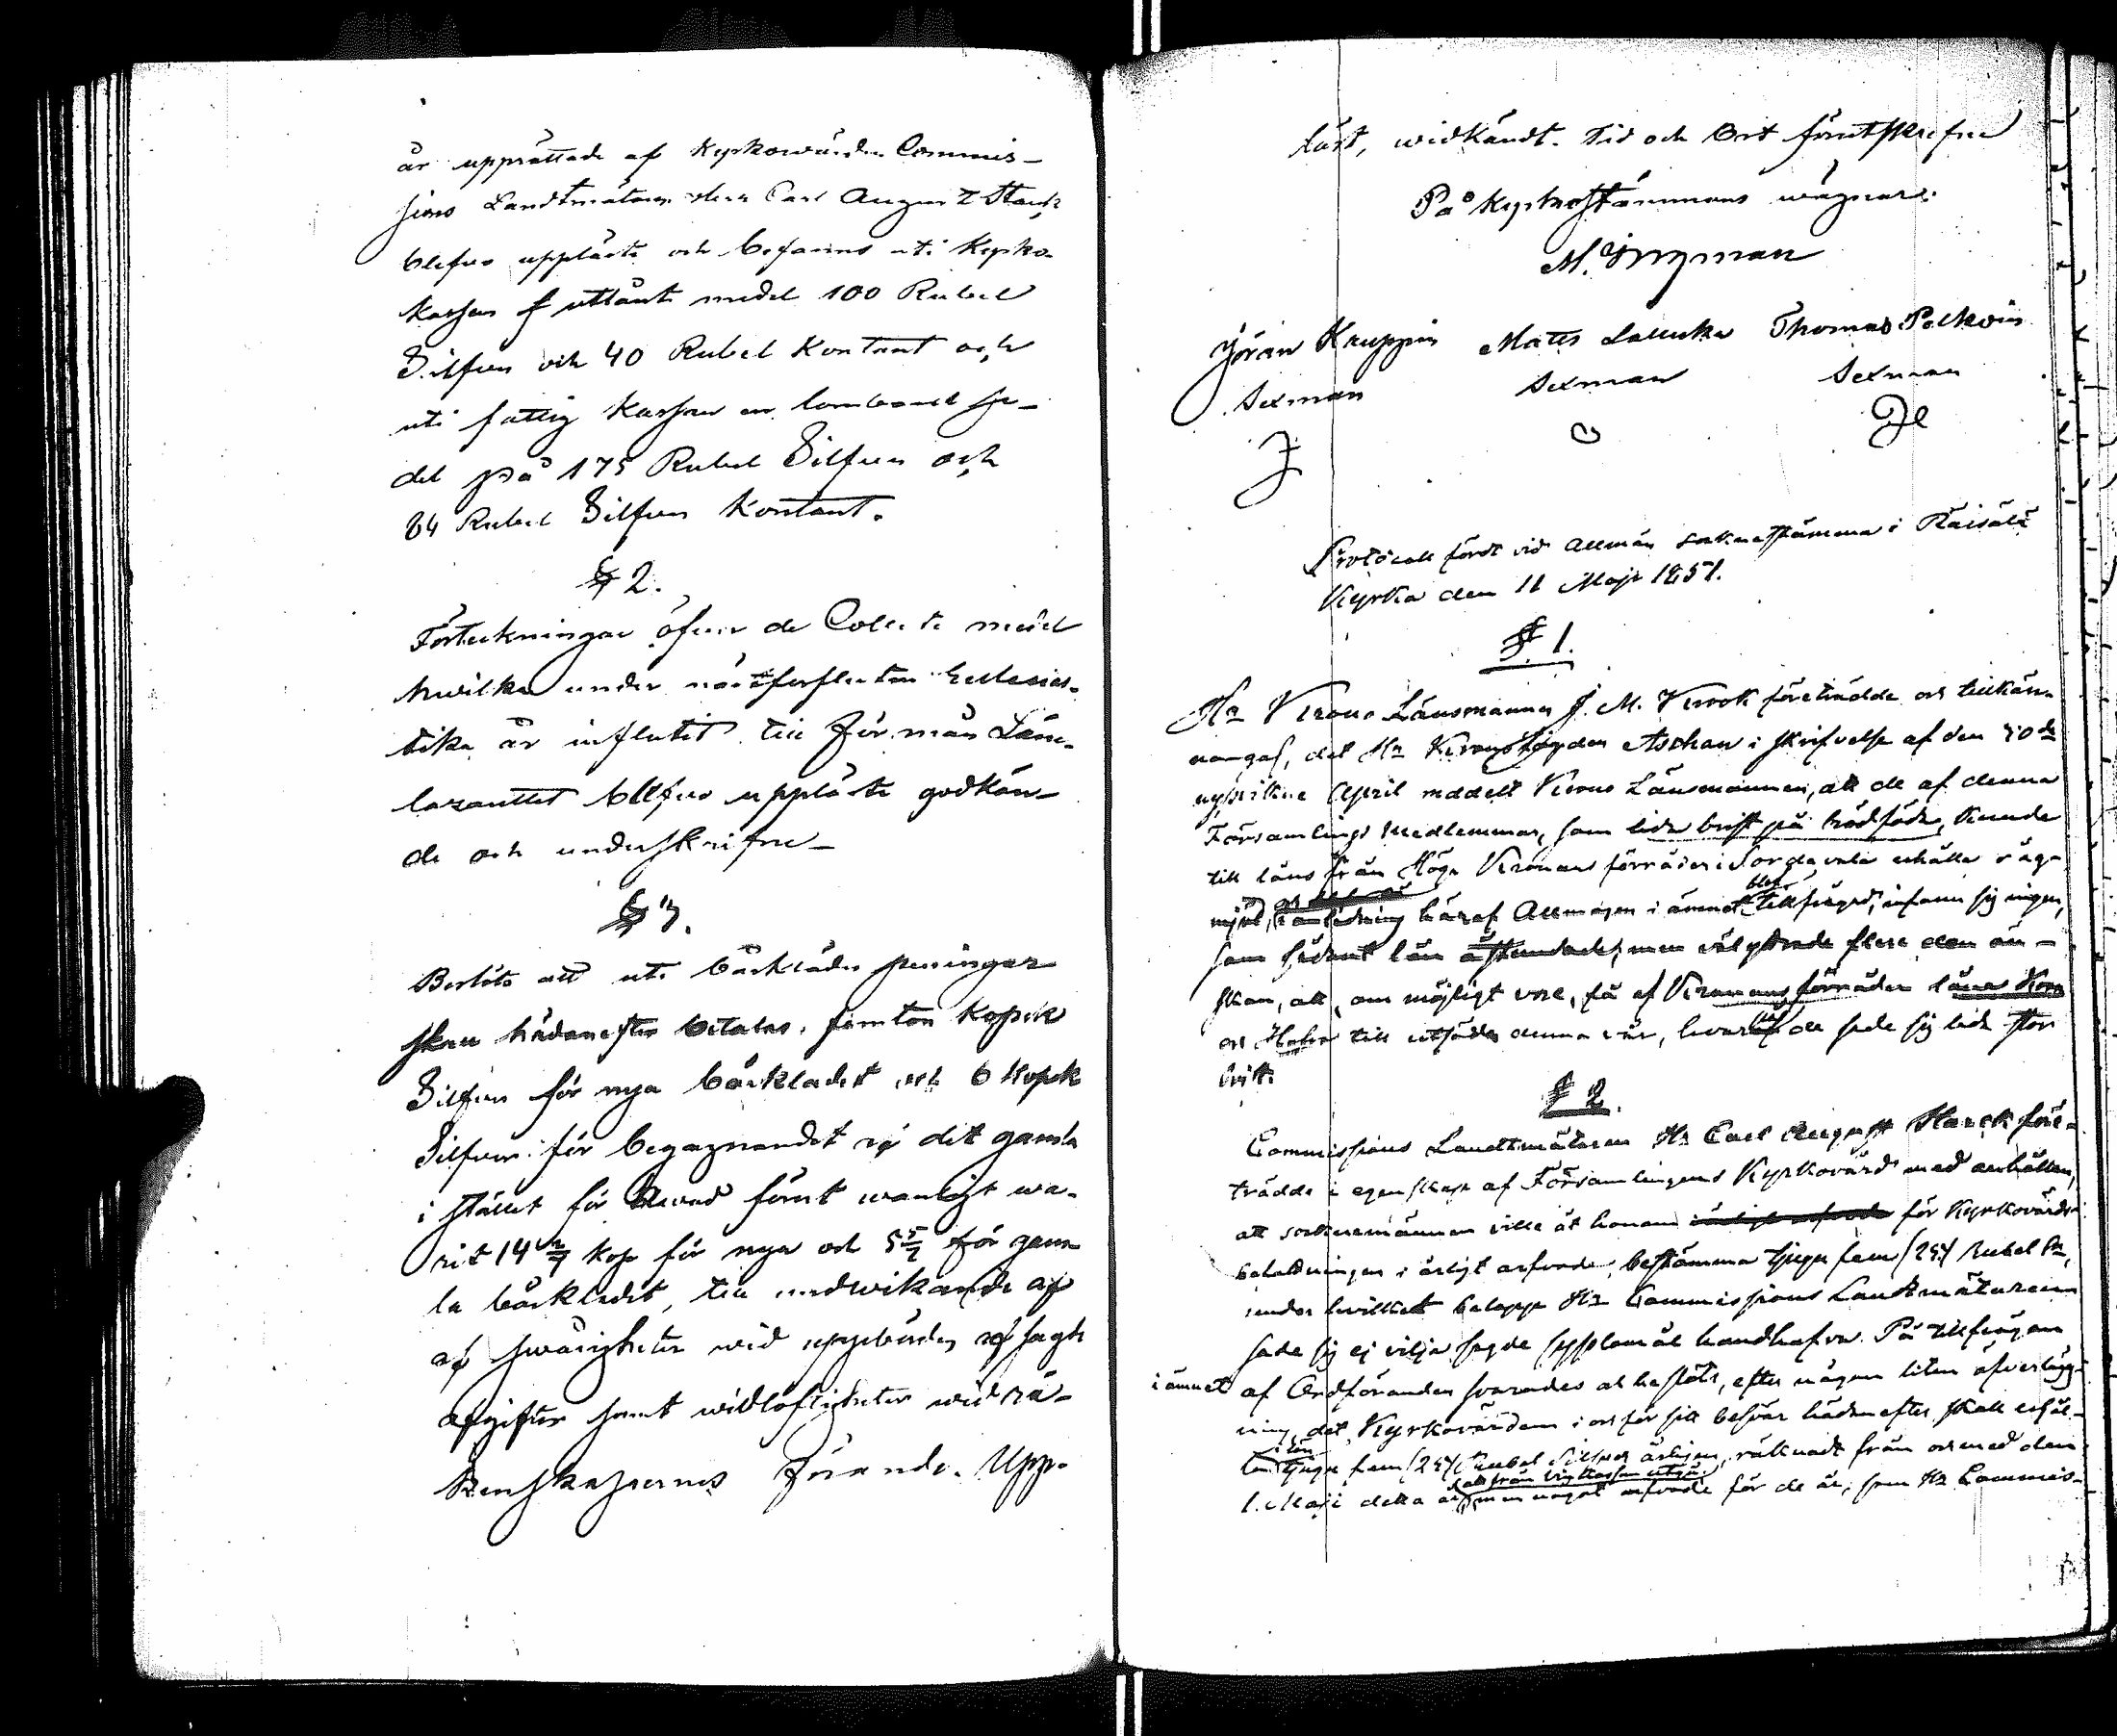 är upprättade af Kyrkowärden Commis-
sions Landtmätaren Herr Carl August Starck
blefvo uppläste och befanns uti Kyrko-
kassan utlånte medel 100 Rubel
Silfver och 40 Rubel Kontant och
uti fattig Kassan en lombard se-
del på 175 Rubel Silfver och
84 Rubel Silfver Kontant.
§ 2.
Förteckningar öfver de Collecte medel
hwilka under näst förflutne Ecclesias-
tika år influtit till förmån Läne-
lazarettet blefvo uppläste godkän-
de och underskrifne_
§ 3.
Beslöts att uti bårklädes penningar
skau hädanefter betalas, femton Kopek
Silfver för nya bårklädet och 6 Kopek
Silfver för begagnandet af det gamla
i stället för hwad förut wanligt wa-
rit 14 2/7 Kop för nya och 5 5/7 för gam-
la bårklädet, till undwikande af
af swårigheter wid uppbörden af sagde
afgifter samt widlöftigheter wid rä-
kenskapernes förande. Upp-
läst, widkändt. Tid och Ort förutskrefne
På Kyrkostämmans wägnar:
M. Ingman
Jöran Kauppin Matts Lallukka Thomas Pelkoin
Sexman Sexman Sexman
Protocoll fördt vid Allmän sockenstämma i Räisälä
Kyrka den 11 Maji 1851.
§ 1.
Hr Krono Länsmannen J. M. Krook företrädde och tillkän-
nagaf, det Hr Kronofogden Aschan i skrifvelse af den 30de
nyssvikne April meddelt Krono Länsmannen, att de af denna
Församlings medlemmar, som lida brist på brödföda, kunde
till låns från Höga Kronans förråder i Sordavala erhålla råg-
mjöl, i anledning häraf Allmogen i ämnet blef tillfrågad, infann sig ingen,
som sådant lån åstundade, men väl yttrade flere den ön-
skan, att, om möjligt vore, få af Kronans förråder låna Korn
och Hafra till utsäde denna vår, hvaraf de sade sig lida stor
brist.
§ 2.
Commissions Landtmätaren Hr Carl August Starck före-
trädde i egenskap af Församlingens Kyrkovärd med anhållan,
att sockenemännen ville åt honom för Kyrkovärds
befattningen i årligt arfvode, bestämma tjugu fem (25) Rubel Sr,
under hvilket belopp Hr Commissions Landtmätaren
sade sig ej vilja sagde sysslomål handhafva. På tillfrågan
i ämnet af Ordföranden svarades och beslöts, efter någon liten öfverlägg-
ning, det Kyrkovärden i och för sitt besvär hädanefter skall erhål-
la i lön tjugu fem (25) Rubel Silfver årligen, räknadt från och med den
1. Maji detta år, men något arfvode för de år, som Hr Commis-